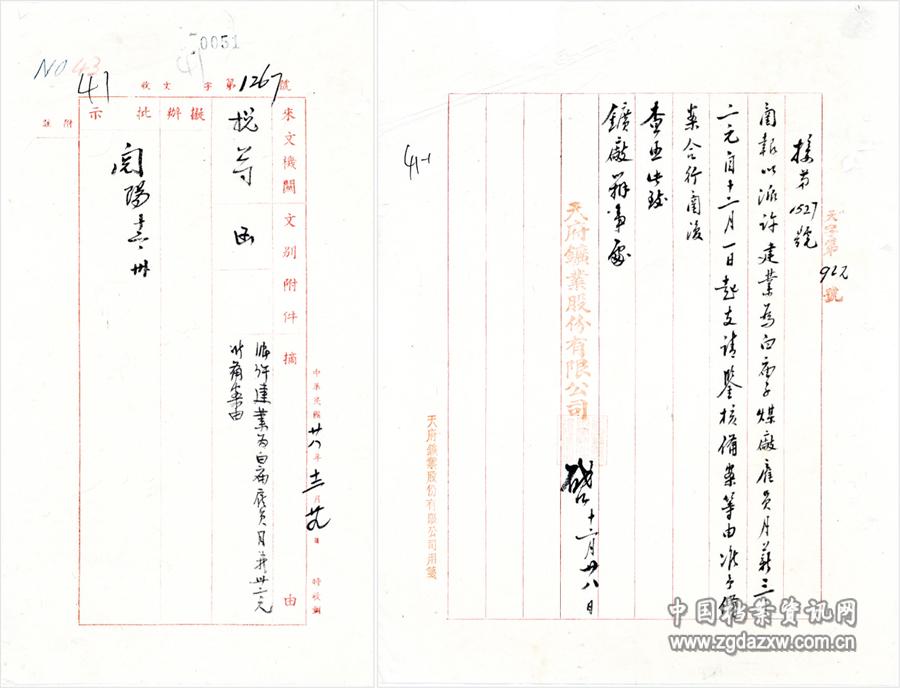 0051
NO 43
41
收文 字第1267號
來文機關
文別
附件
摘
由
擬辦
批示
附註
稅蒂
函
派許建業為白廟雇員月薪卅二元
准備案由
中華民國廿八年十二月廿九日
特被謝
閱 陽 卅
41-1
天字第962號
接第1527號
函報以派許建業為白廟子煤廠雇員月薪三十
二元自十二月一日起支請鑒核備案等由准予備
案合行函復
查照此致
鑛廠辦事處
天府鑛業股份有限公司
啓 十二月廿八日
天府鑛業股份有限公司用箋
中国档案资讯网
www.zgdazxw.com.cn